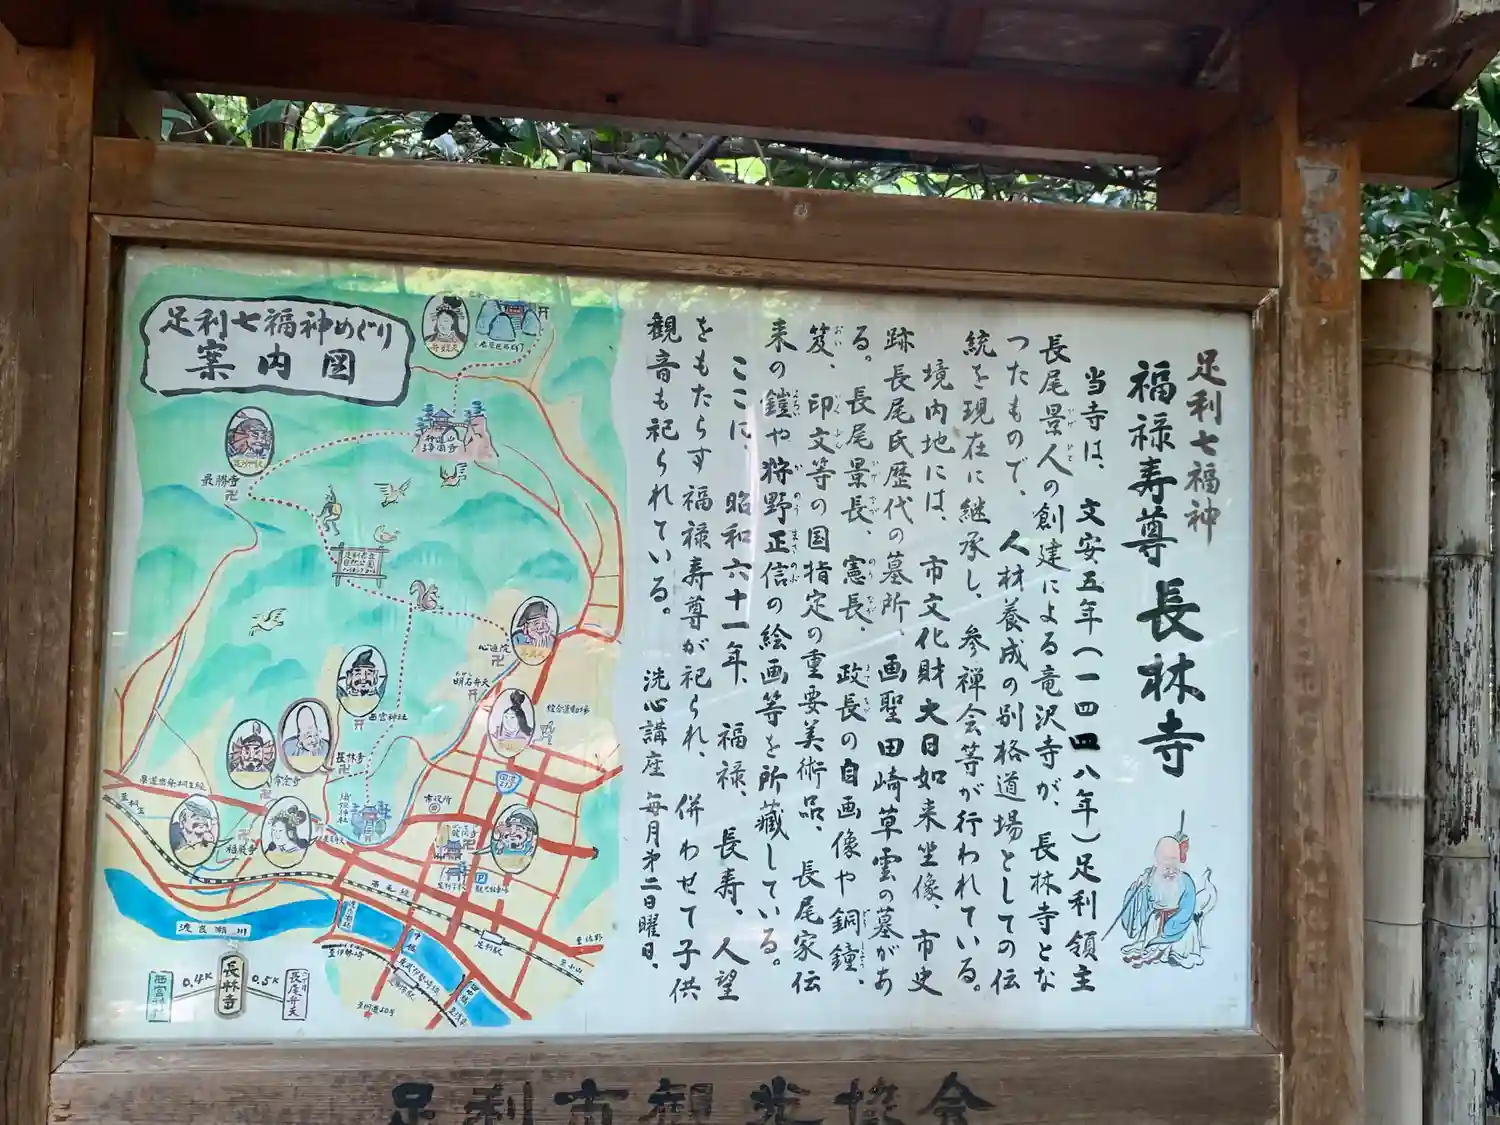 足利七福神
福禄寿尊 長林寺
当寺は、文安五年(一四四八年)足利領主
長尾景人の創建による竜沢寺が、長林寺とな
つたもので、人材養成の別格道場としての伝
統を現在に継承し、参禅会等が行われている。
境内地には、市文化財大日如来坐像、市史
跡長尾氏歴代の墓所、画聖田崎草雲の墓があ
る。長尾景長、憲長、政長の自画像や銅鐘、
笈、印文等の国指定の重要美術品、長尾家伝
来の鎧や狩野正信の絵画等を所蔵している。
ここに、昭和六十一年、福禄、長寿、人望
をもたらす福禄寿尊が祀られ、併わせて子供
観音も祀られている。 洗心講座 毎月第二日曜日、
足利七福神めぐり
案内図
最勝寺
心通院
明石弁天
西宮神社
長林寺
常念寺
福厳寺
県道足利桐生線
至桐生
市役所
総合運動場
国道293
足利学校
渡良瀬川
中橋
足利駅
至伊勢崎
至佐野
至小山
西宮神社
0.4K
長林寺
0.5K
長尾弁天
足利市観光協会